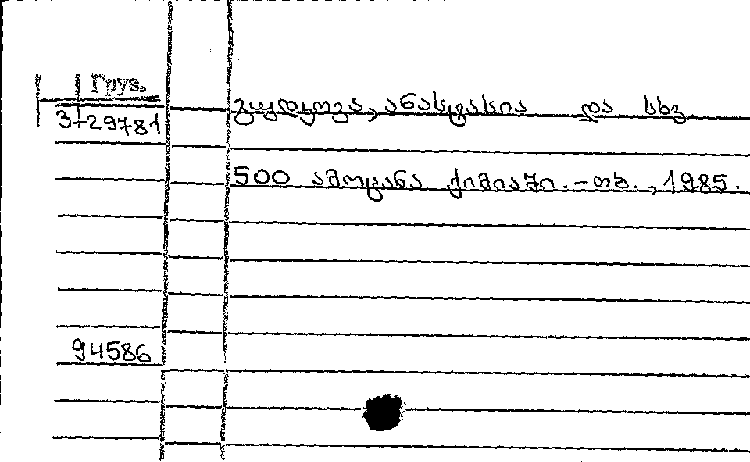 Груз.
3-29781
გუდკოვა, ანასტასია და სხვ.
500 ამოცანა ქიმიაში. – თბ., 1985.
94586